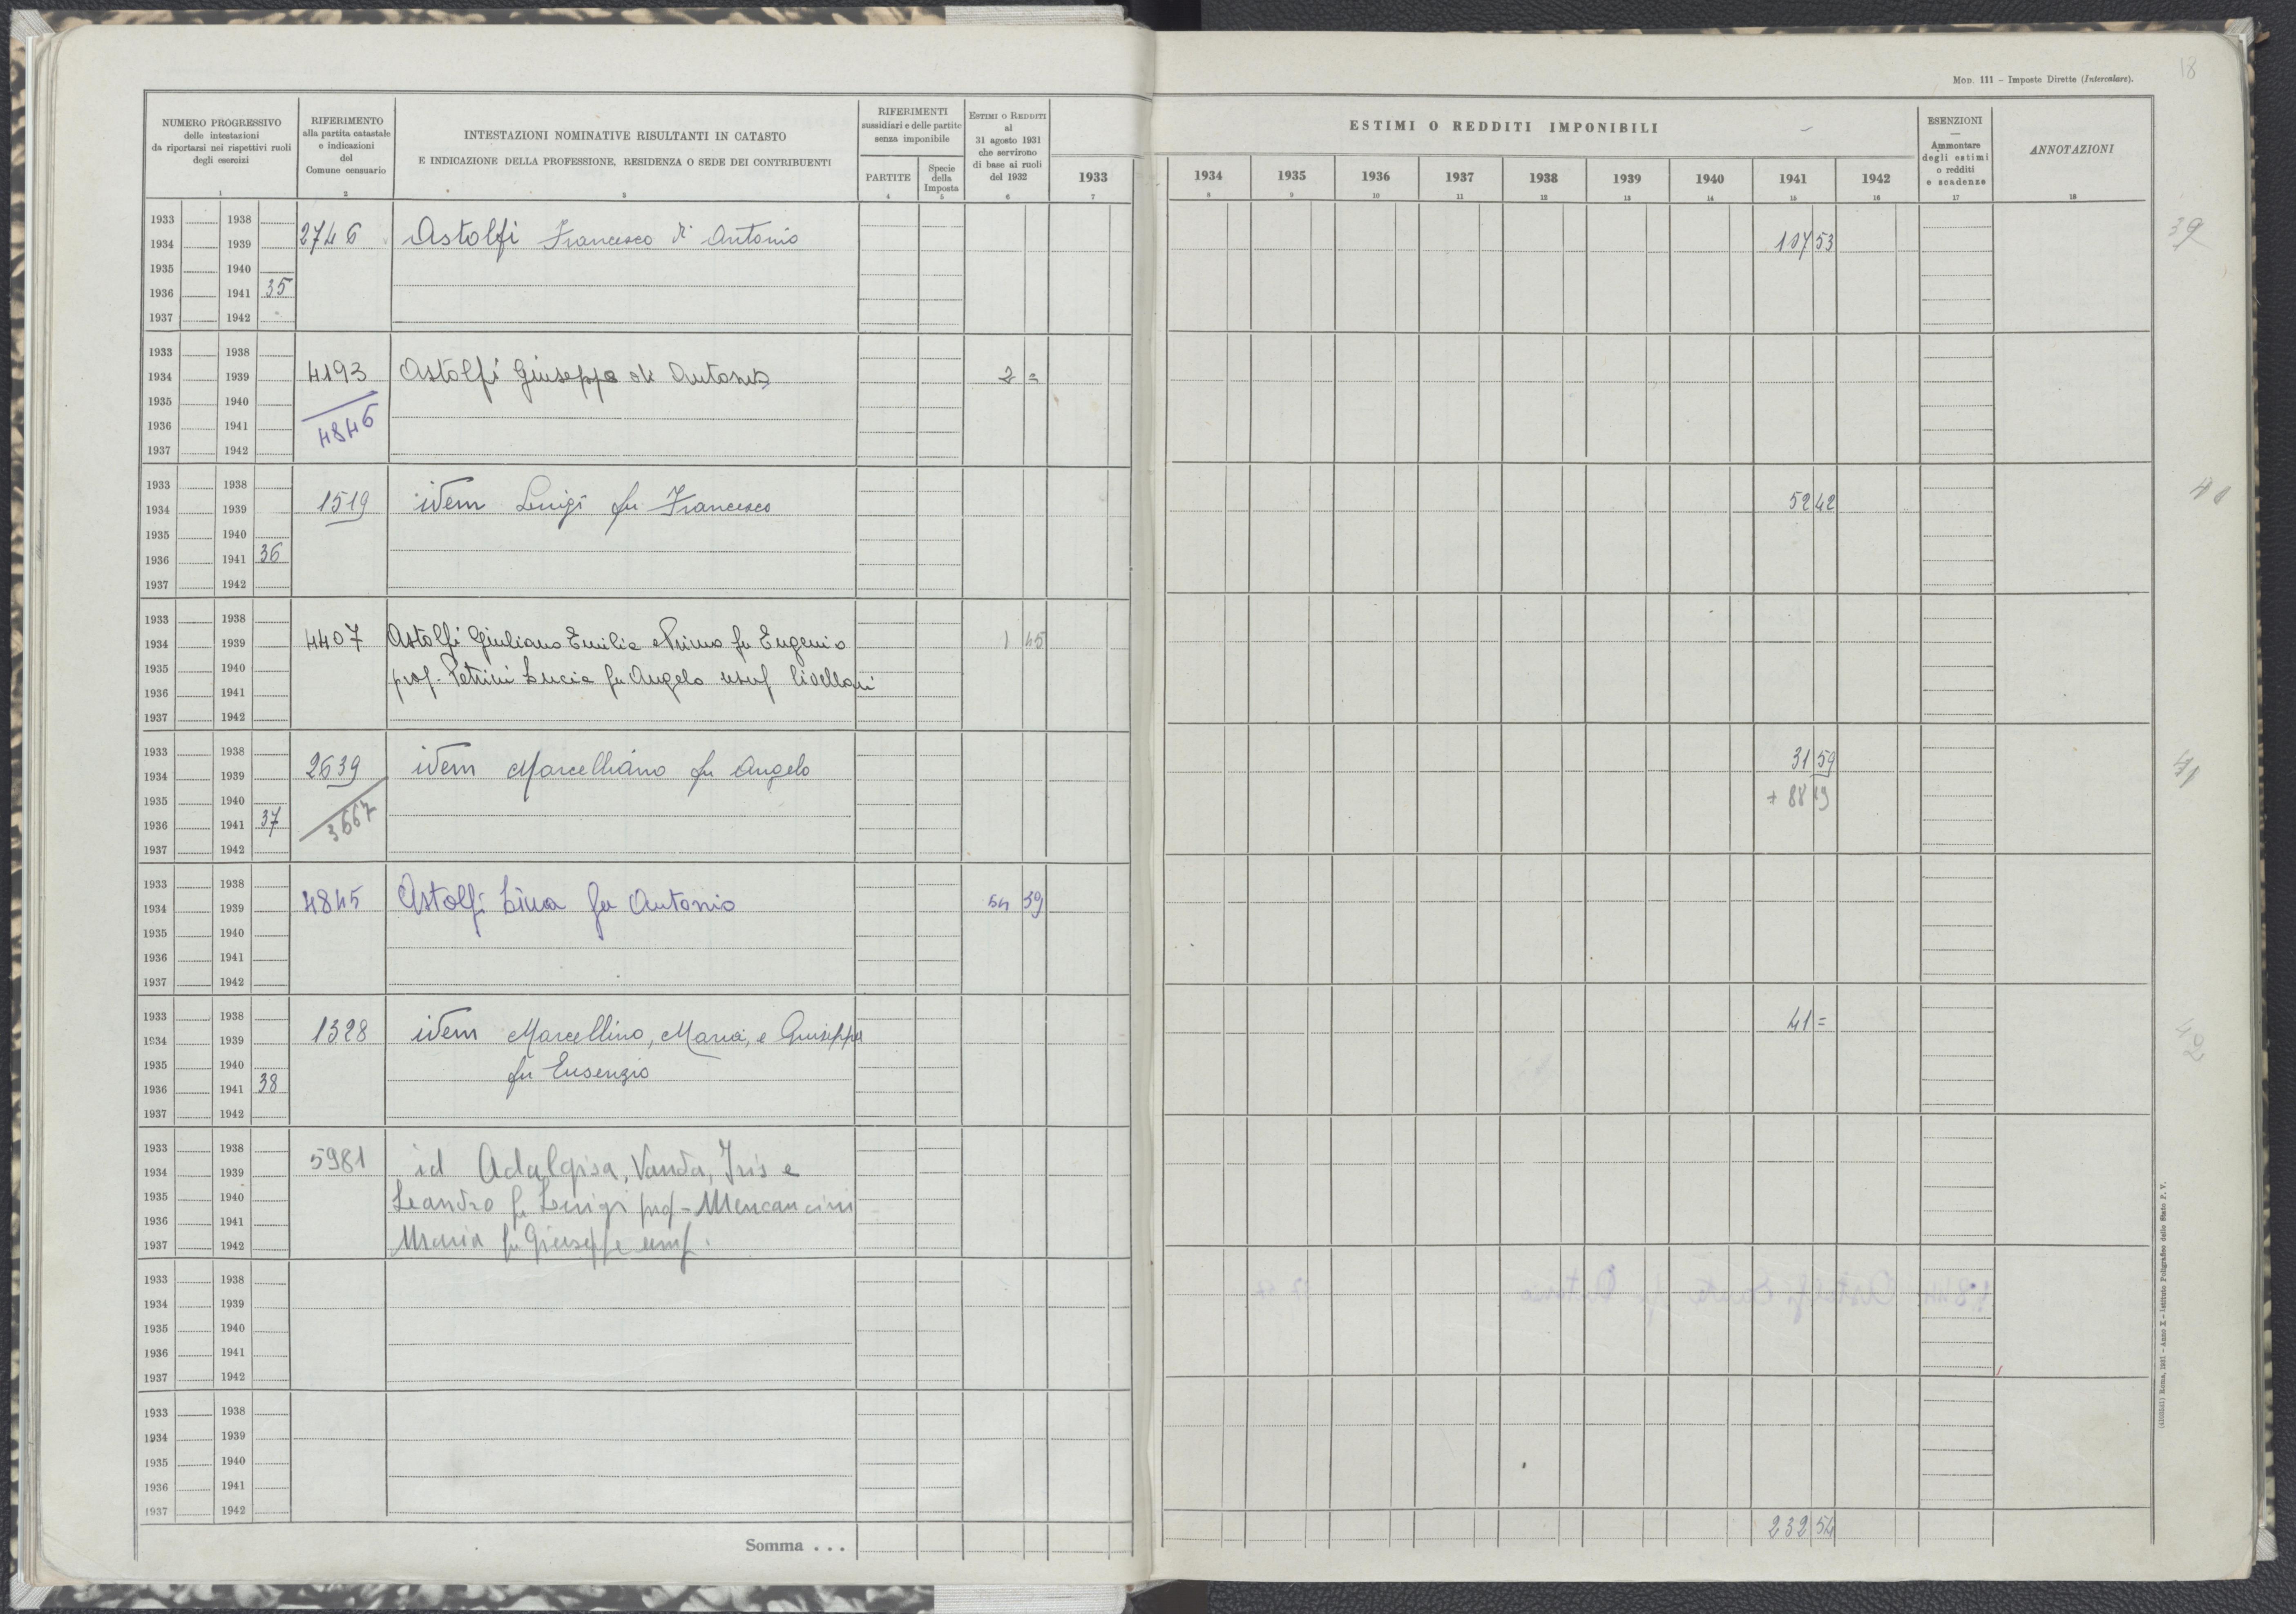 Mod. 111 – Imposte Dirette (Intercalare).
18
NUMERO PROGRESSIVO
delle intestazioni
da riportarsi nei rispettivi ruoli
degli esercizi
1
RIFERIMENTO
alla partita catastale
e indicazioni
del
Comune censuario
2
INTESTAZIONI NOMINATIVE RISULTANTI IN CATASTO
E INDICAZIONE DELLA PROFESSIONE, RESIDENZA O SEDE DEI CONTRIBUENTI
3
RIFERIMENTI
sussidiari e delle partite
senza imponibile
PARTITE
4
Specie
della
Imposta
5
Estimi o Redditi
al
31 agosto 1931
che servirono
di base ai ruoli
del 1932
6
1933
7
ESTIMI O REDDITI IMPONIBILI
1934 1935 1936 1937 1938 1939 1940 1941 1942
8 9 10 11 12 13 14 15 16
ESENZIONI
—
Ammontare
degli estimi
o redditi
e scadenze
17
ANNOTAZIONI
18
1933 1938
1934 1939 2746 Astolfi Francesco di Antonio 107 53 39
1935 1940
1936 1941 35
1937 1942
1933 1938
1934 1939 4193 Astolfi Giuseppe di Antonio 2 =
1935 1940
1936 1941 4846
1937 1942
1933 1938
1934 1939 1519 idem Luigi fu Francesco 52 42 40
1935 1940
1936 1941 36
1937 1942
1933 1938
1934 1939 4407 Astolfi Giuliano Emilia e Primo fu Eugenio 1 45
1935 1940 prop. Petrini Lucia fu Angelo usuf livellari
1936 1941
1937 1942
1933 1938 31 59
1934 1939 2639 idem Marcelliano fu Angelo 41
1935 1940 + 88 19
1936 1941 37 3667
1937 1942
1933 1938
1934 1939 4845 Astolfi Lina fu Antonio 54 39
1935 1940
1936 1941
1937 1942
1933 1938
1934 1939 1328 idem Marcellino, Maria, e Giuseppa 41 = 42
1935 1940 fu Eusenzio
1936 1941 38
1937 1942
1933 1938 5981
1934 1939 id Adalgisa, Vanda, Iris e
1935 1940 Leandro fu Luigi prop - Mencancini
1936 1941
1937 1942 Maria fu Giuseppe usuf.
1933 1938
1934 1939
1935 1940
1936 1941
1937 1942
1933 1938
1934 1939
1935 1940
1936 1941
1937 1942
Somma . . . 232 54
(4100521) Roma, 1931 – Anno X – Istituto Poligrafico dello Stato P. V.